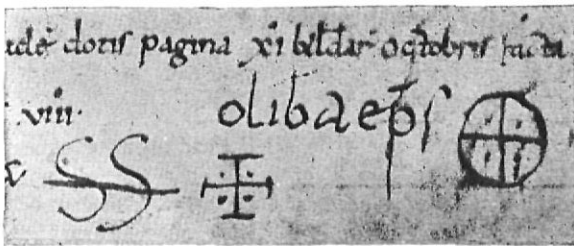 dotis pagina xi octobris facta
viii.
oliba eps
SS